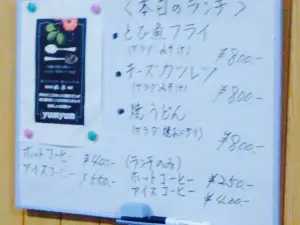 〈本日のランチ〉
・とび魚フライ
(サラダ・みそ汁) ¥800.-
・チーズカツレツ
(サラダ・みそ汁) ¥800.-
・焼うどん
(サラダ・焼おにぎり) ¥800.-
yumyum
ホットコーヒー ¥400.-
アイスコーヒー ¥550.-
(ランチのみ)
ホットコーヒー ¥250.-
アイスコーヒー ¥400.-